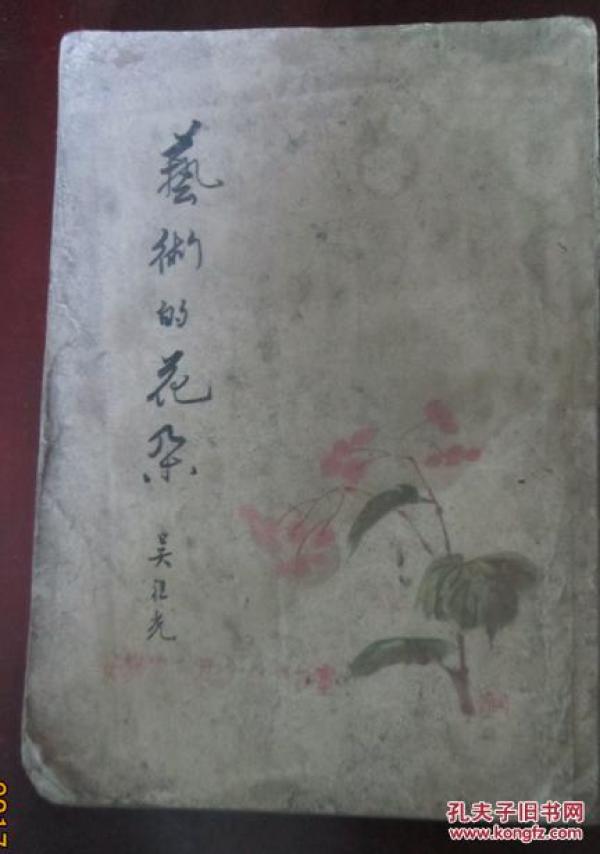 藝術的花朵
吳祖光
孔夫子旧书网
www.kongfz.com